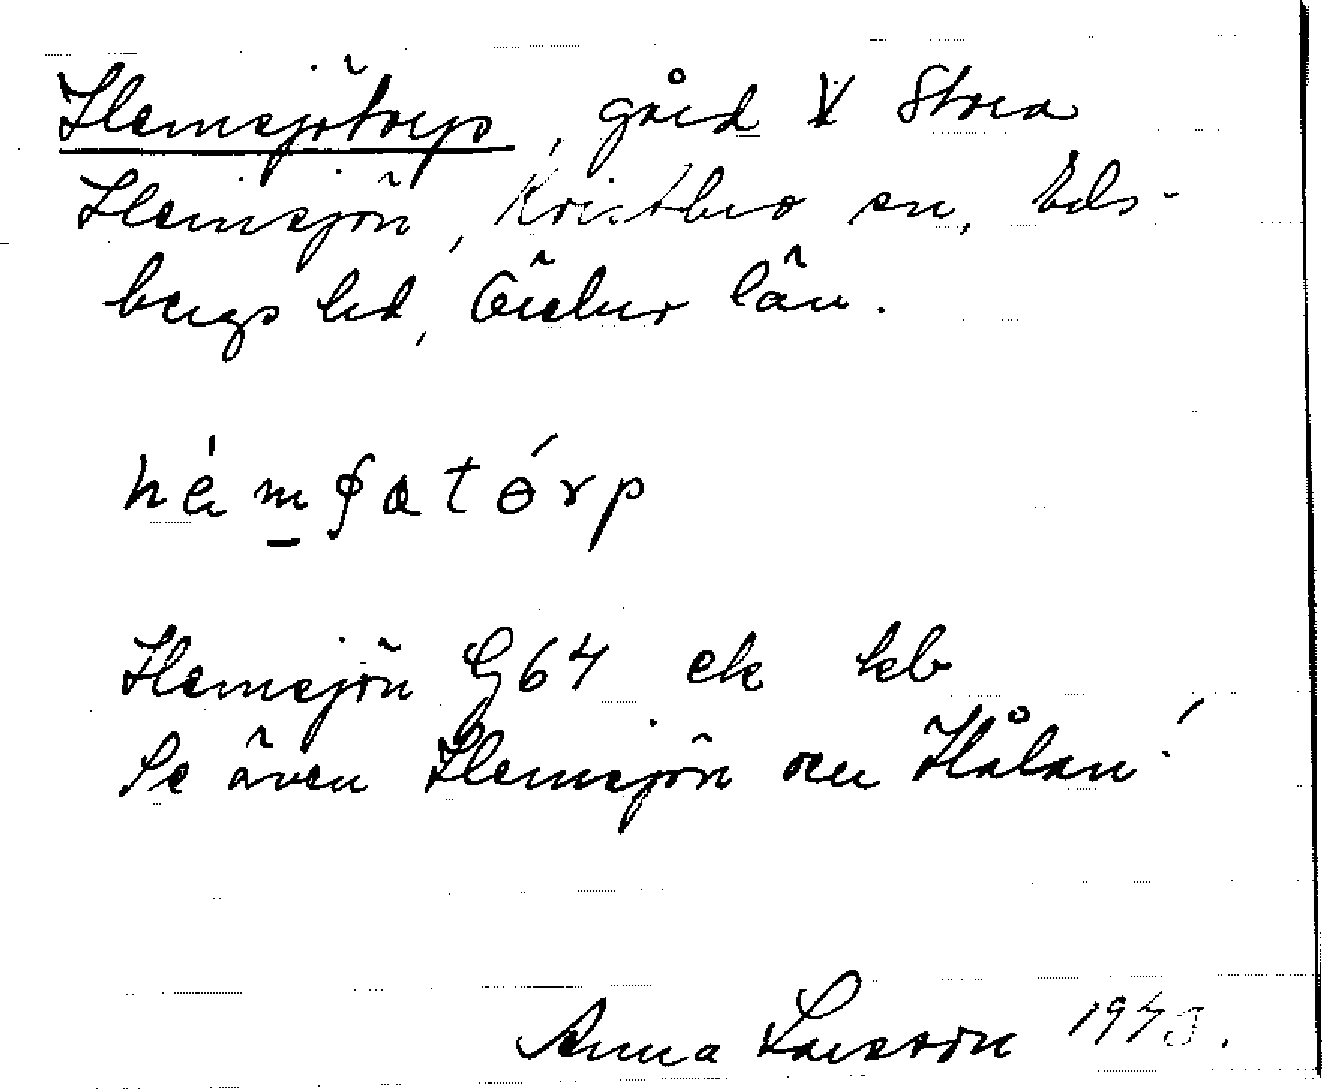 Hemsjötorp, gård V Stora
Hemsjön, Kvistbro sn, Eds-
bergs hd, Örebro län.
Hemsjön G64 ek kb
Se även Hemsjön o Hålan!
Anna Larsson